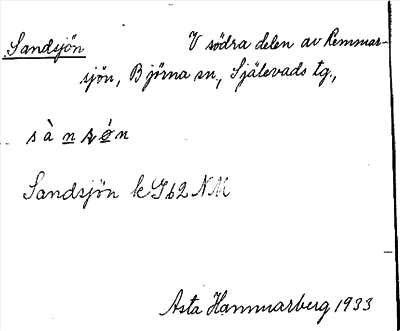 Sandsjön V södra delen av Remmar-
sjön, Björna sn, Själevads tg.,
Sandsjön k G62 NM
Asta Hammarberg 1933